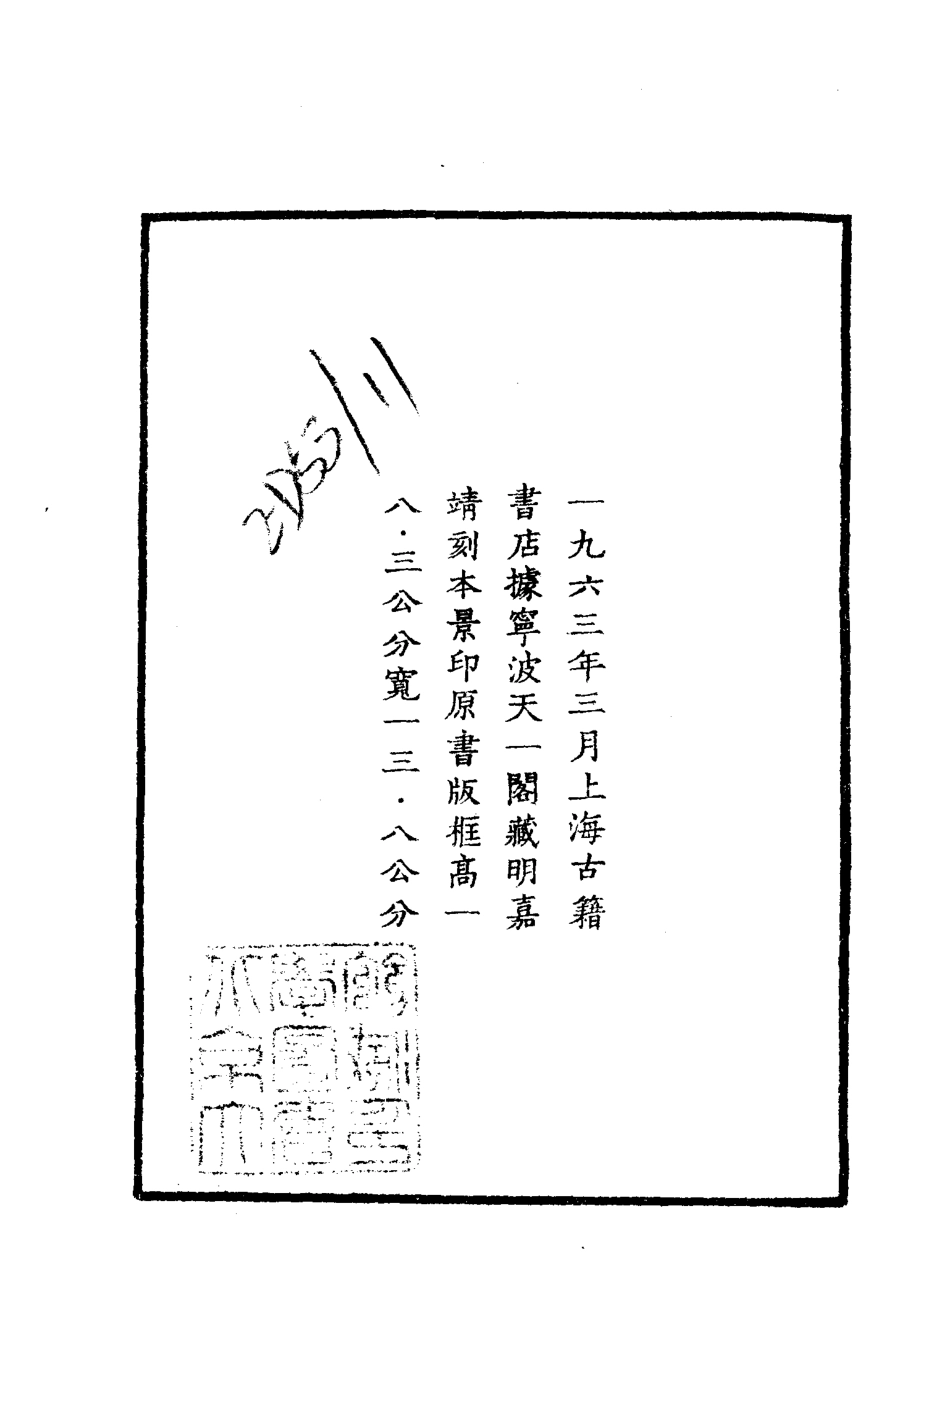 一九六三年三月上海古籍
書店據寧波天一閣藏明嘉
靖刻本景印原書版框高一
八·三公分寬一三·八公分